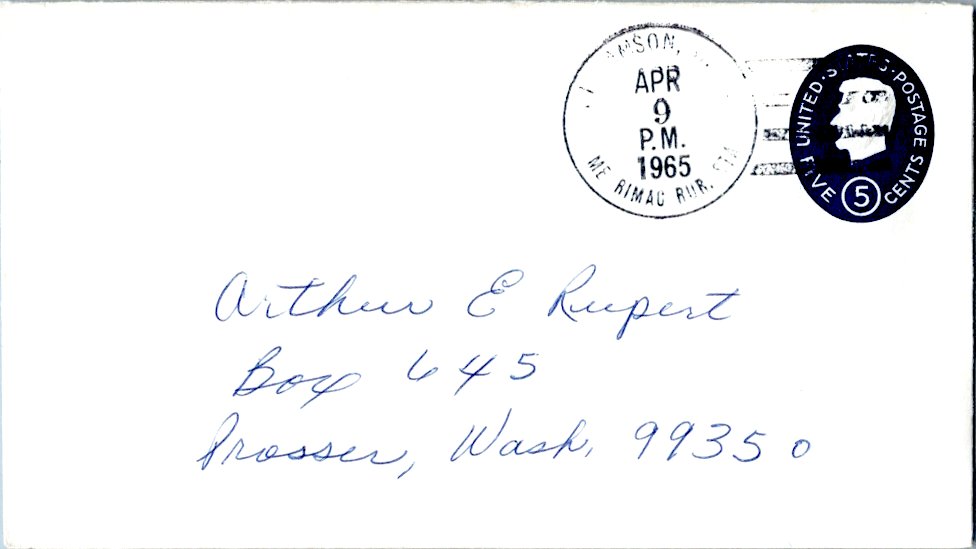 APR
9
P.M.
1965
RUR. STA
UNITED · STATES · POSTAGE
FIVE 5 CENTS
Arthur E Rupert
Box 645
Prosser, Wash, 99350